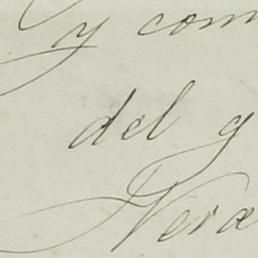 y com
del g
Vera